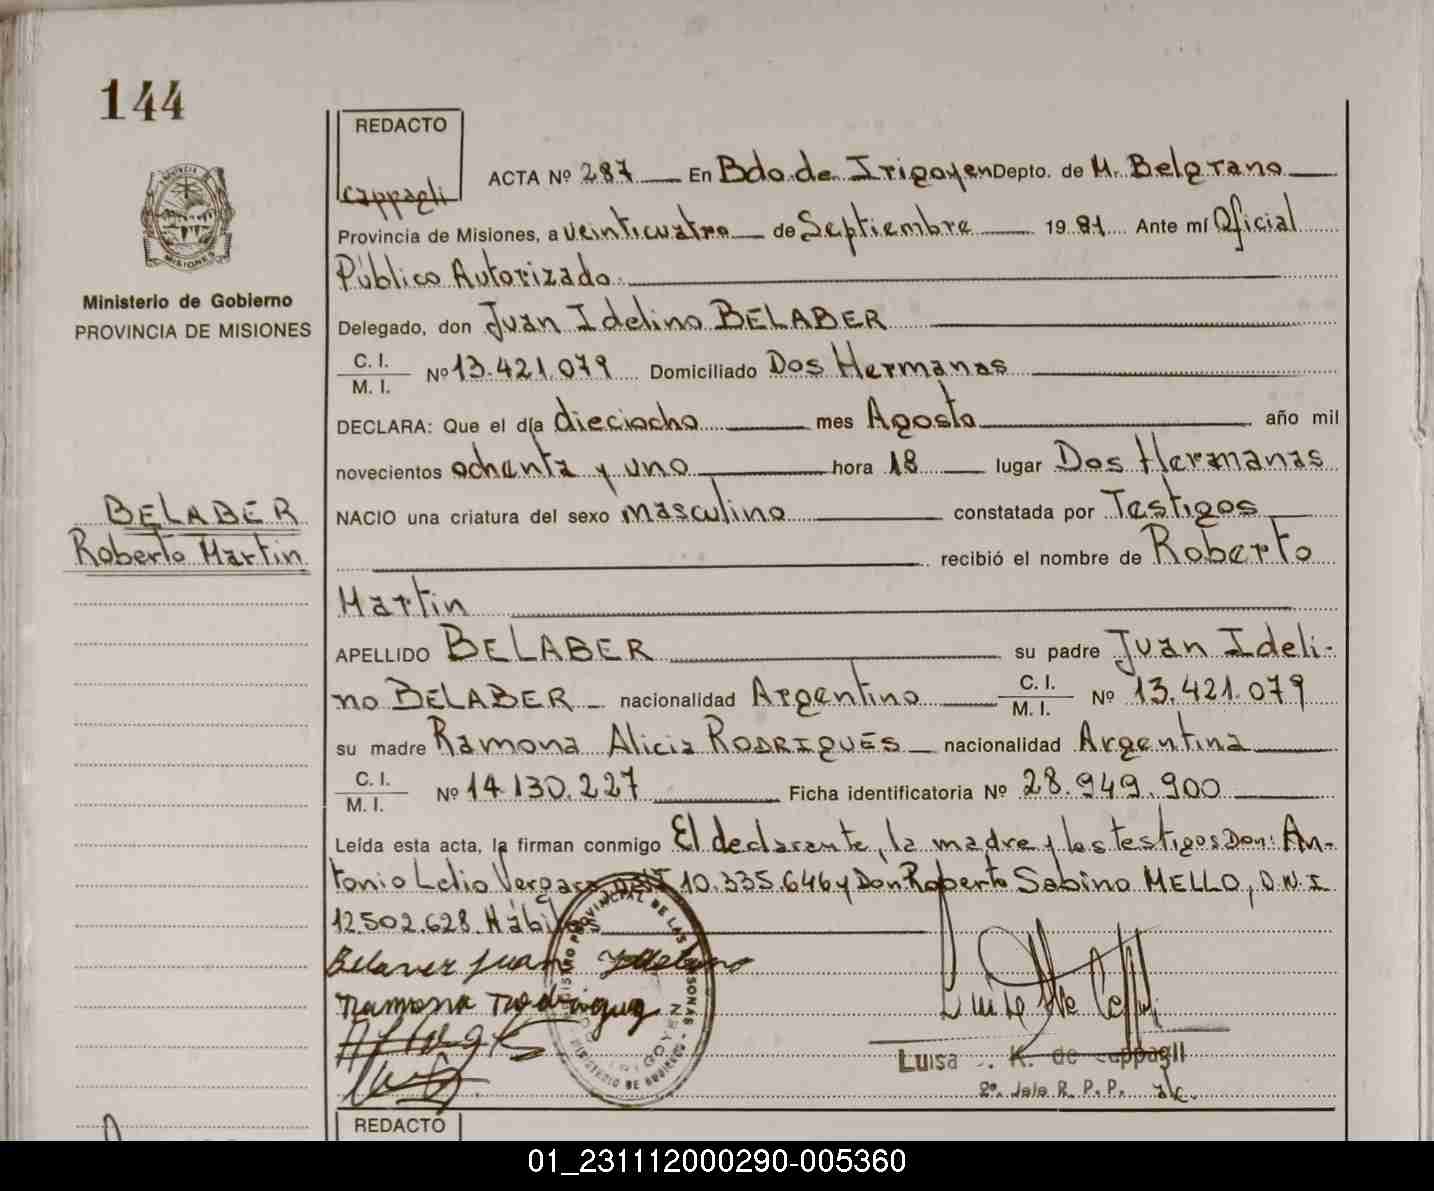 144
REDACTO
Cappagli
ACTA Nº 287 En Bdo. de Irigoyen Depto. de M. Belgrano
Provincia de Misiones, a veinticuatro de Septiembre 19 81 Ante mí Oficial
Público Autorizado.
Ministerio de Gobierno
PROVINCIA DE MISIONES
Delegado, don Juan Idelino BELABER
C. I.
M. I. Nº 13.421.079 Domiciliado Dos Hermanas
DECLARA: Que el día dieciocho mes Agosto año mil
novecientos ochenta y uno hora 18 lugar Dos Hermanas
BELABER
Roberto Martin
NACIO una criatura del sexo masculino constatada por Testigos
recibió el nombre de Roberto
Martin
APELLIDO BELABER su padre Juan Ideli-
no BELABER nacionalidad Argentino C. I. M. I. Nº 13.421.079
su madre Ramona Alicia RODRIGUÉS nacionalidad Argentina
C. I.
M. I. Nº 14.130.227 Ficha identificatoria Nº 28.949.900
Leída esta acta, la firman conmigo El declarante, la madre y los testigos Don: An-
tonio Lelio Vergara DNI 10.335.646 y Don Roberto Sabino MELLO, D.N.I
12.502.628. Hábiles
Belaver Juan
Ramona Rodrigue
PROVINCIAL DE LAS PERSONAS
MINISTERIO DE GOBIERNO
IRIGOYEN
Luisa K. de Cappagli
2º. Jefe R. P. P. a/c.
REDACTO
01_231112000290-005360